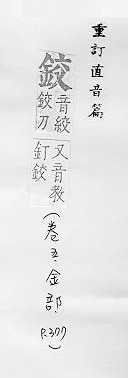 重訂直音篇
鉸
音絞
鉸刀
又音教
釘鉸
(卷五.金部.
P.377)